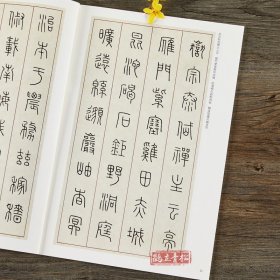 嶽宗泰岱禪主云亭
雁門紫塞雞田赤城
昆池碣石鉅野洞庭
曠遠緜邈巖岫杳冥
治本于農務茲稼穡
俶載南畝